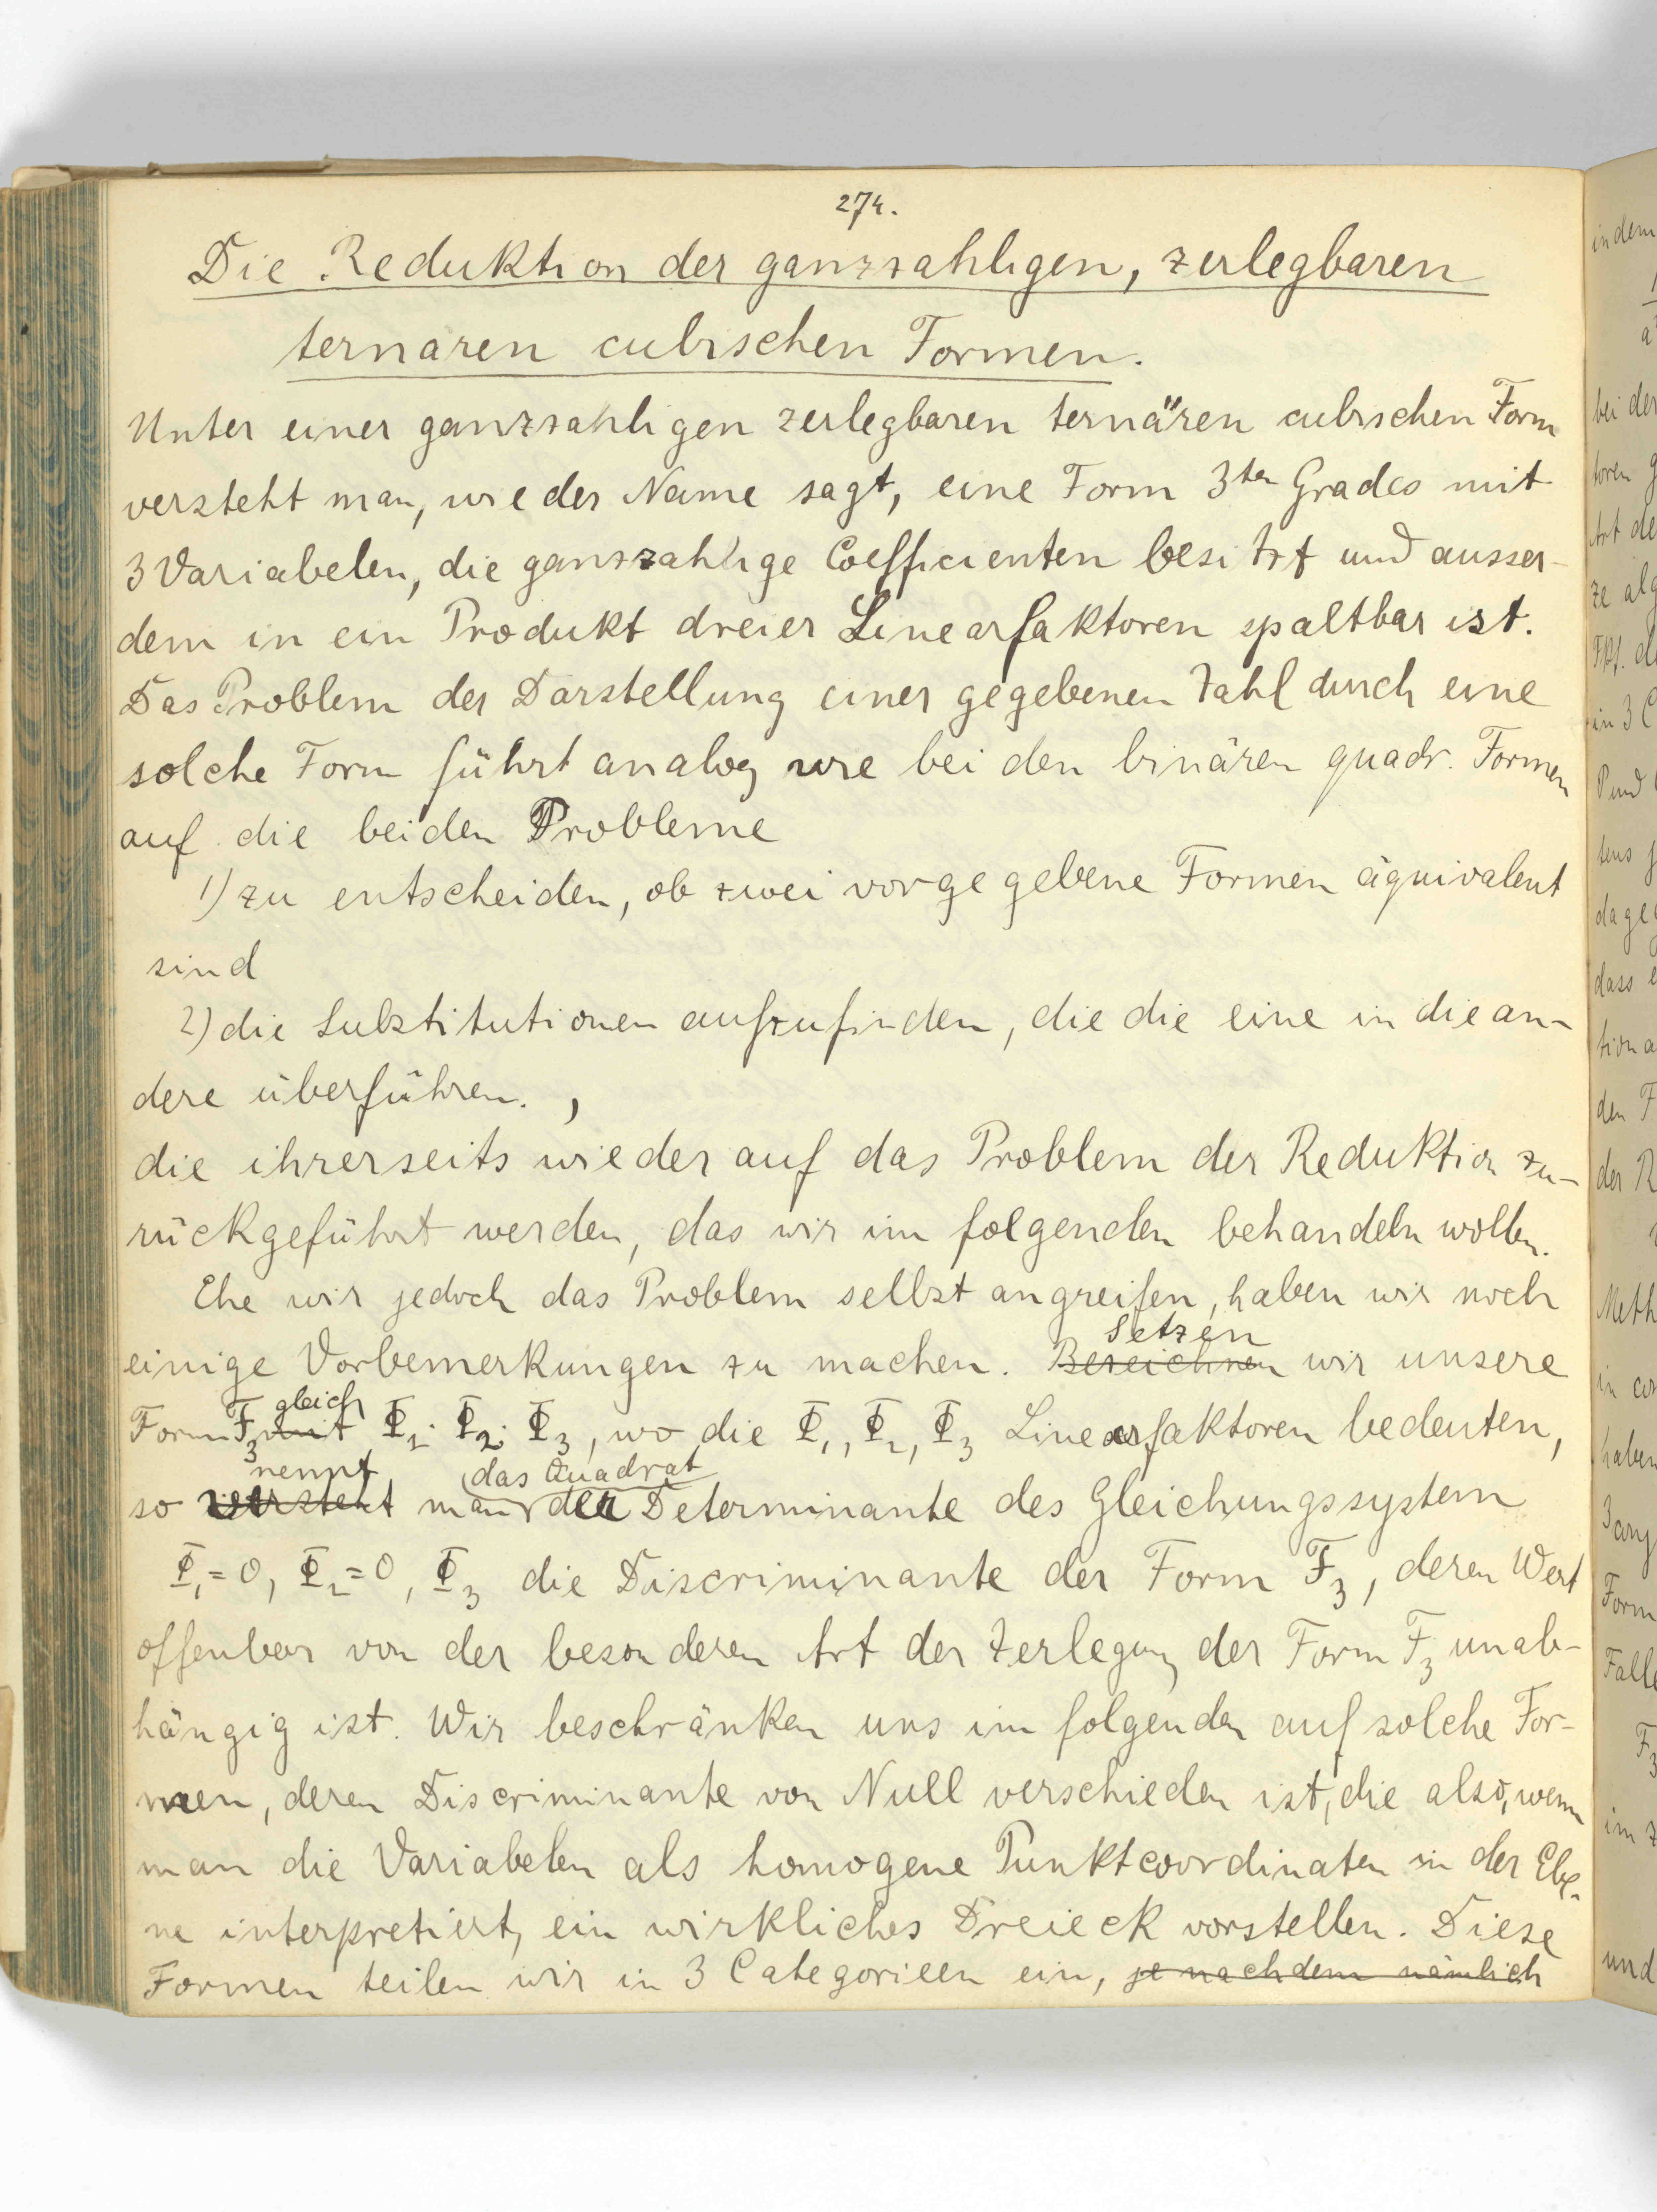 274.
Die Reduktion der ganzzahligen, zerlegbaren
ternären cubischen Formen.
Unter einer ganzzahligen zerlegbaren ternären cubischen Form
versteht man, wie der Name sagt, eine Form 3ten Grades mit
3 Variabelen, die ganzzahlige Coefficienten besitzt und ausser-
dem in ein Produkt dreier Linearfaktoren spaltbar ist.
Das Problem der Darstellung einer gegebenen Zahl durch eine
solche Form führt analog wie bei den binären quadr. Formen
auf die beiden Probleme
1) zu entscheiden, ob zwei vorgegebene Formen äquivalent
sind
2) die Substitutionen aufzufinden, die die eine in die an-
dere überführen. ,
die ihrerseits wieder auf das Problem der Reduktion zu-
rückgeführt werden, das wir im folgenden behandeln wollen.
Ehe wir jedoch das Problem selbst angreifen, haben wir noch
Setzen
einige Vorbemerkungen zu machen. Bezeichnen wir unsere
gleich
Form F₃ mit Φ₁. Φ₂. Φ₃, wo die Φ₁, Φ₂, Φ₃ Linearfaktoren bedeuten,
nennt das Quadrat
so versteht man der Determinante des Gleichungssystem
Φ₁=0, Φ₂=0, Φ₃ die Discriminante der Form F₃, deren Wert
offenbar von der besonderen Art der Zerlegung der Form F₃ unab-
hängig ist. Wir beschränken uns im folgenden auf solche For-
men, deren Discriminante von Null verschieden ist, die also, wenn
man die Variabelen als homogene Punktcoordinaten in der Ebe-
ne interpretiert, ein wirkliches Dreieck vorstellen. Diese
Formen teilen wir in 3 Categorieen ein, je nachdem nämlich
indem
bei der